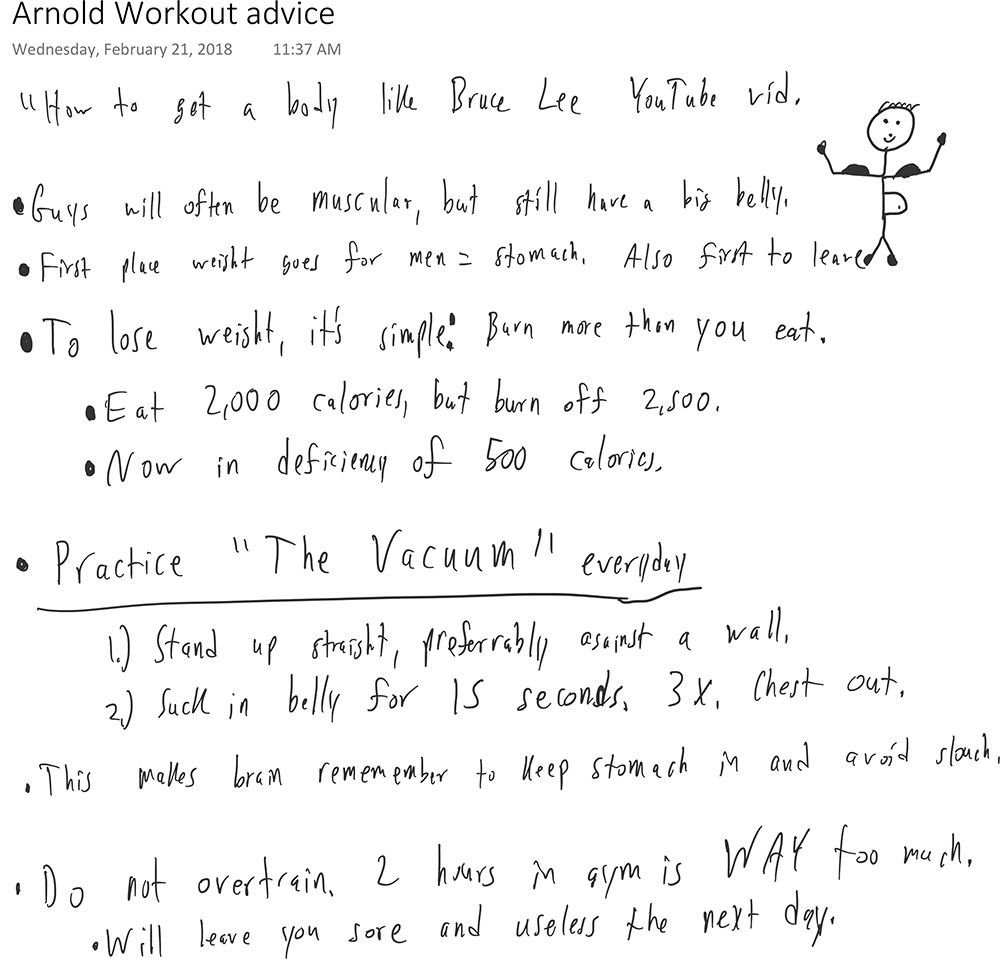 Arnold Workout advice
Wednesday, February 21, 2018 11:37 AM
"How to get a body like Bruce Lee YouTube vid.
• Guys will often be muscular, but still have a big belly.
• First place weight goes for men = stomach. Also first to leave
• To lose weight, it's simple: Burn more than you eat.
• Eat 2,000 calories, but burn off 2,500.
• Now in deficiency of 500 calories.
• Practice "The Vacuum" everyday
1.) Stand up straight, preferrably against a wall.
2.) Suck in belly for 15 seconds. 3x. Chest out.
• This makes brain rememember to keep stomach in and avoid slouch.
• Do not overtrain. 2 hours in gym is WAY too much.
• Will leave you sore and useless the next day.